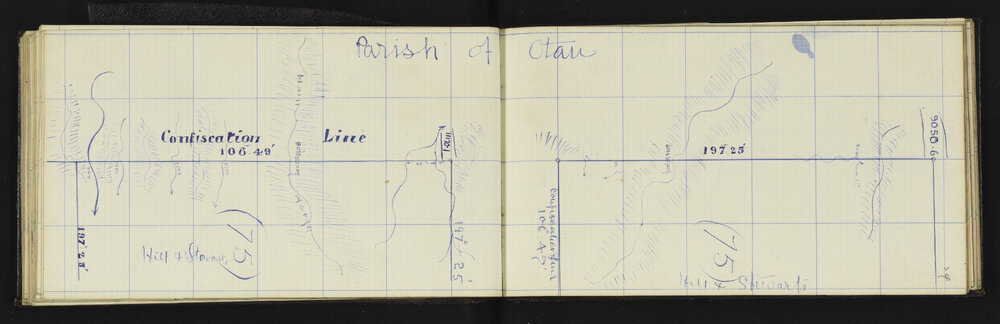 Parish of Otau
Confiscation Line
106° 49'
Main
Range
197° 25'
(75)
Hill & Stewart
197° 25'
Confiscation Line
106° 49'
197 25'
9050.60
(75)
Hill & Stewarts